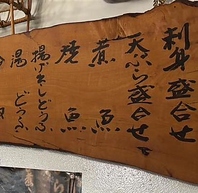 刺身盛合せ
天ぷら盛合せ
煮魚
焼魚
揚げだしどうふ
湯どうふ